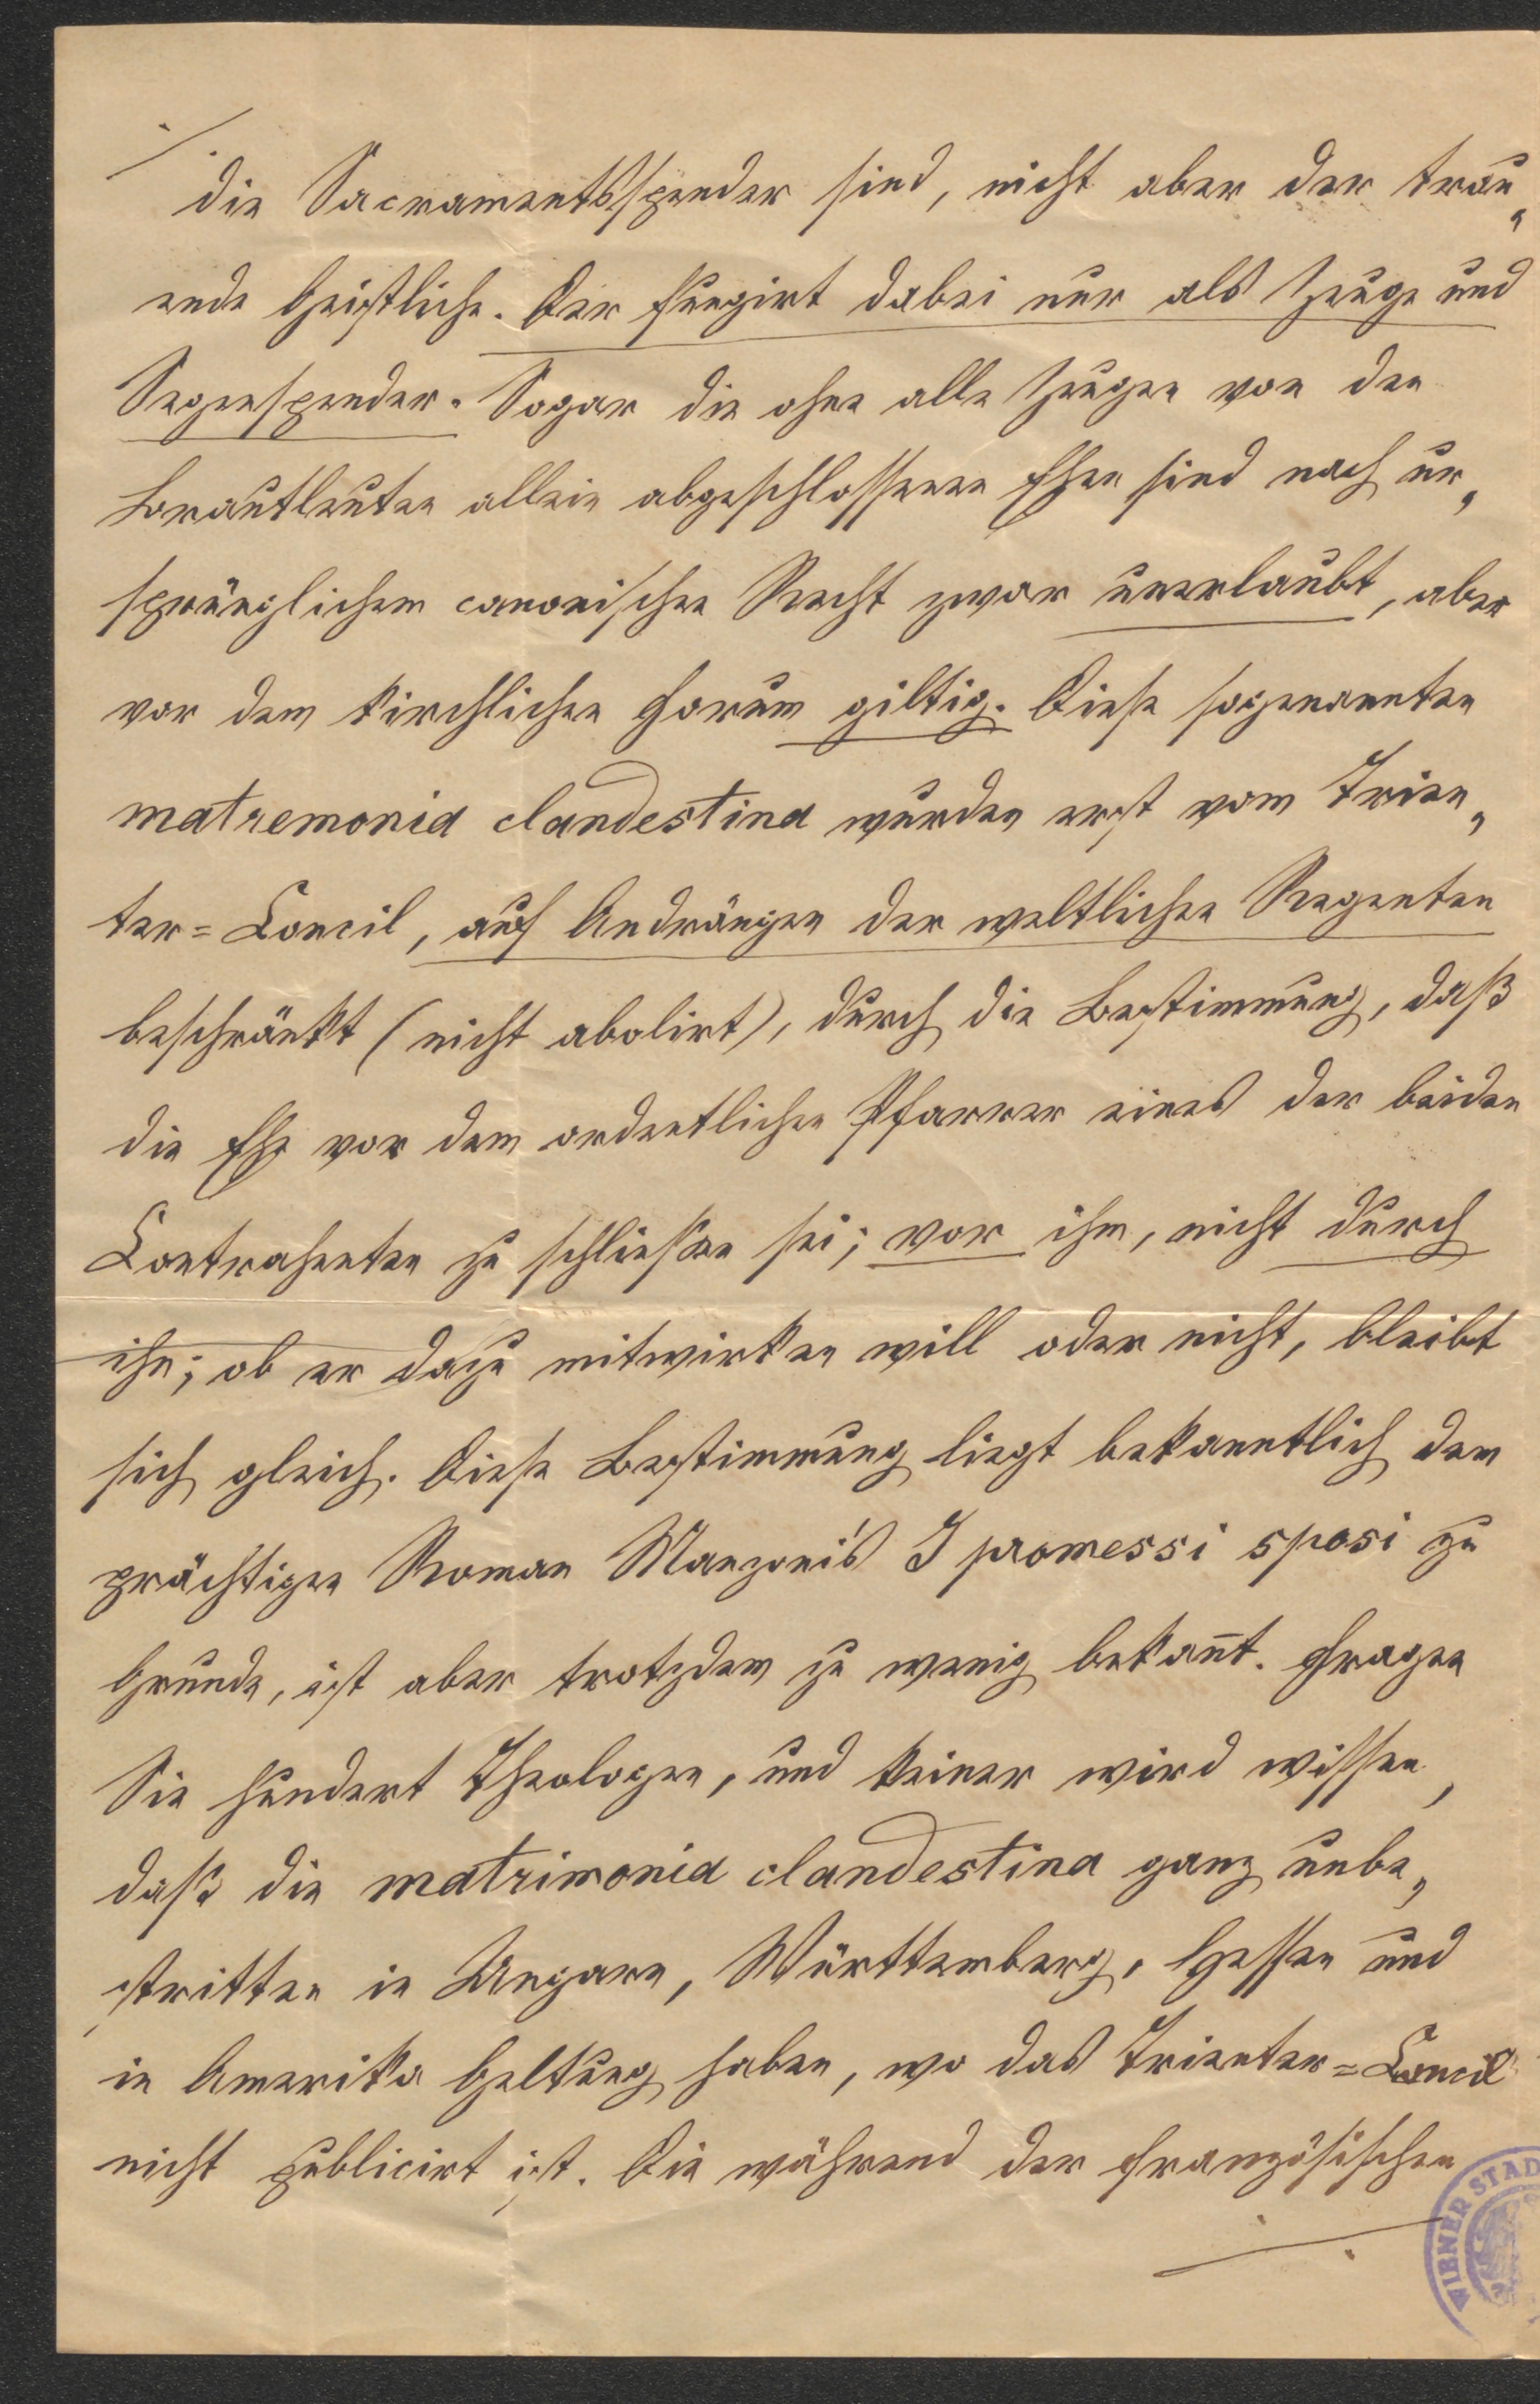 ./.
die Sacramentsspender sind, nicht aber der trau„
ende Geistliche. Der fungirt dabei nur als Zeuge und
Segenspender. Sogar die ohne alle Zeugen von den
Brautleuten allein abgeschlossenen Ehen sind nach ur„
sprünglichem canonischen Recht zwar unerlaubt, aber
vor dem kirchlichen Forum giltig. Diese sogenannten
matremonia clandestina wurden erst vom Trien„
ter=Concil, auf Andrängen der weltlichen Regenten
beschränkt (nicht abolirt), durch die Bestimmung, daß
die Ehe vor dem ordentlichen Pfarrer eines der beiden
Contrahenten zu schließen sei; vor ihm, nicht durch
ihn; ob er dazu mitwirken will oder nicht, bleibt
sich gleich. Diese Bestimmung liegt bekanntlich dem
prächtigen Roman Manzoni's I promessi sposi zu
Grunde, ist aber trotzdem zu wenig bekan̄t. Fragen
Sie hundert Theologen, und keiner wird wissen,
daß die matrimonia clandestina ganz unbe„
stritten in Ungarn, Württemberg, Hessen und
in Amerika Geltung haben, wo das Trienter=Concil
nicht publicirt ist. Die während der französischen
./.
WIENER STAD